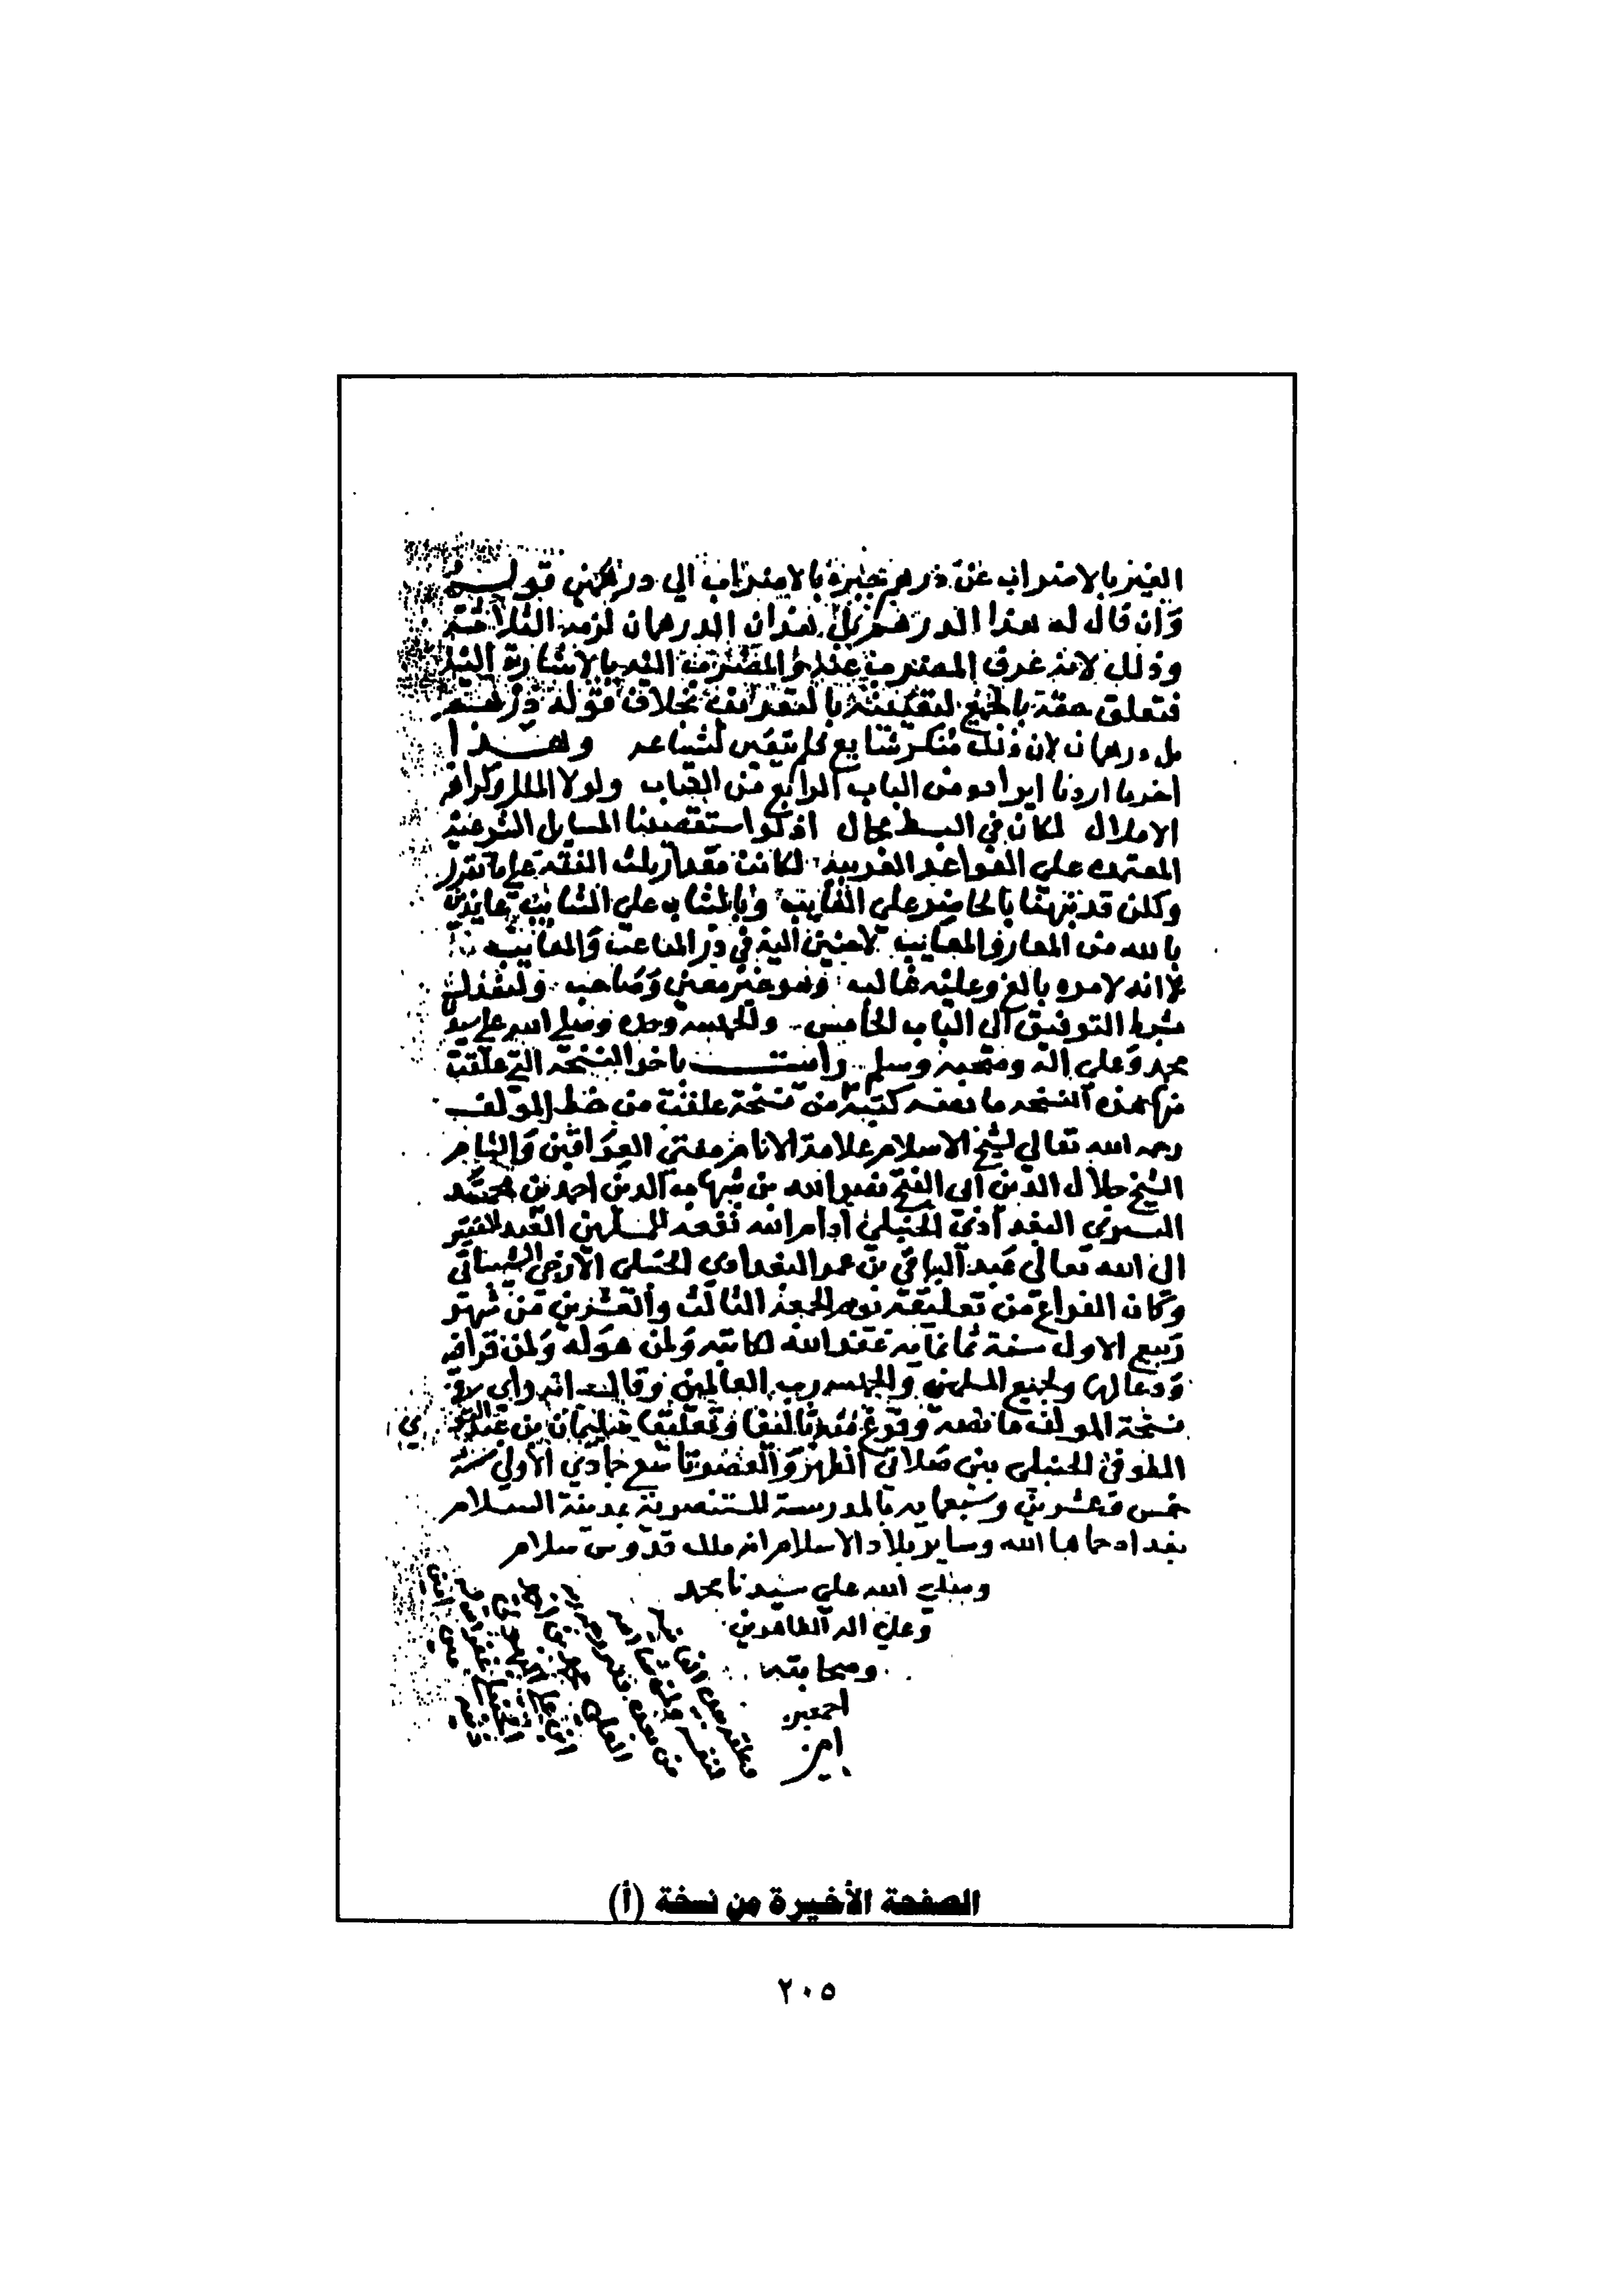 الغير بالاضراب عن درهم بالاضراب الي درهمين قوله
وان قال له هذا الدرهم بل هذان الدرهمان لزمه الثلاثة
وذلك لانه عرف المضرب عنه والمضرب اليه بالاشارة اليه
فتعلق حقه بالجميع لتعينه بالتعريف بخلاف قوله درهم
بل درهمان لان ذلك منكر شايع فلم يتعين وهذا
اخر ما اردنا ايراده من الباب الرابع من الكتاب ولولا الملل وكراهة
الاملال لكان في البسط مجال اذ لو استقصينا المسايل الشرعية
المعتمده علي القواعد العربية لكانت مقدار ثلث الفقه علي ما تقرر
ولكن قد نبهنا بالحاضر علي الغايب عايذين
بالله من المعايب
لا انه لامره بالغ وعليه غالب وهو خير معين وصاحب
شرط التوفيق الي الباب الخامس والحمد لله وحده وصلي الله علي سيدنا
محمد وعلي اله وصحبه وسلم رايت باخر النسخة التي علقت
منها هذه النسخه ما نصه كتبه من نسخة علقت من خط المولف
رحمه الله تعالي لشيخ الاسلام علامة الانام مفتي العراقين والشام
الشيخ جلال الدين ابي الفتح نصر الله بن شهاب الدين احمد بن محمد
التستري البغدادي الحنبلي ادام الله نفعه للمسلمين العبد الفقير
الي الله تعالي عبد الباقي بن عمر البغدادي الحنبلي الازجي الشيباني
وكان الفراغ من تعليقه يوم الجمعة الثالث والعشرين من شهر
ربيع الاول سنة ثمانمايه غفر الله لكاتبه ولمن هو له ولمن قرا فيه
ودعا لهما ولجميع المسلمين والحمد لله رب العالمين وقال انه راي
نسخة المولف ما نصه وفرغ منه تاليفا وتعليقا سليمان بن عبد القوي
الطوفي الحنبلي بين صلاتي الظهر والعصر تاسع جمادي الاولي سنة
خمس وعشرين وسبعمايه بالمدرسة المستنصرية بمدينة السلام
بغداد حماها الله وساير بلاد الاسلام انه ملك قدوس سلام
وصلي الله علي سيدنا محمد
وعلي اله الطاهرين
وصحابته
اجمعين
امين
الصفحة الأخيرة من نسخة (أ)
٢٠٥